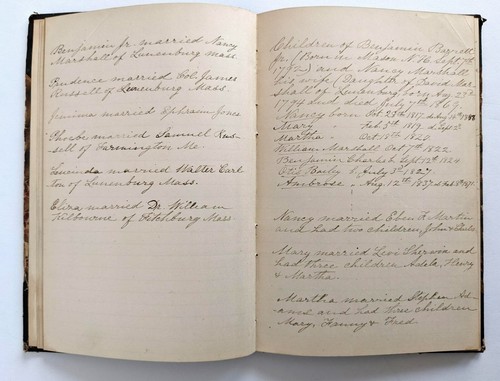 Benjamin Jr. married Nancy
Marshall of Lunenburg mass.
Prudence married Col. James
Russell of Lunenburg Mass.
Jemima married Ephraim Jones
Phoebe married Samuel Rus-
sell of Farmington Me.
Lucinda married Walter Carl
ton of Lunenburg Mass.
Eliza married Dr. William
Kilbourne of Fitchburg Mass
Children of Benjamin Barrett
Jr. (Born in Mason N.H. Sept 7th
) and Nancy Marshall
his wife (Daughter of David Mar-
shall of Lunenburg born Aug 23d
1794 and died July 7th 1869.
Nancy born Oct 25th 1817
Mary " Feb 5th 1819
Martha " Oct 18th 1820
William Marshall Oct 7th 1822
Benjamin Charles Sept 12th 1824
Otis July 3d 1827
Ambrose " Aug. 12th 1837
Nancy married Eben R. Martin
and had two children, John &
Mary married Levi Sherwin and
had three children Adela, Henry
& Martha.
Martha married Stephen Ad-
ams and had three children
Mary, Fanny & Fred.